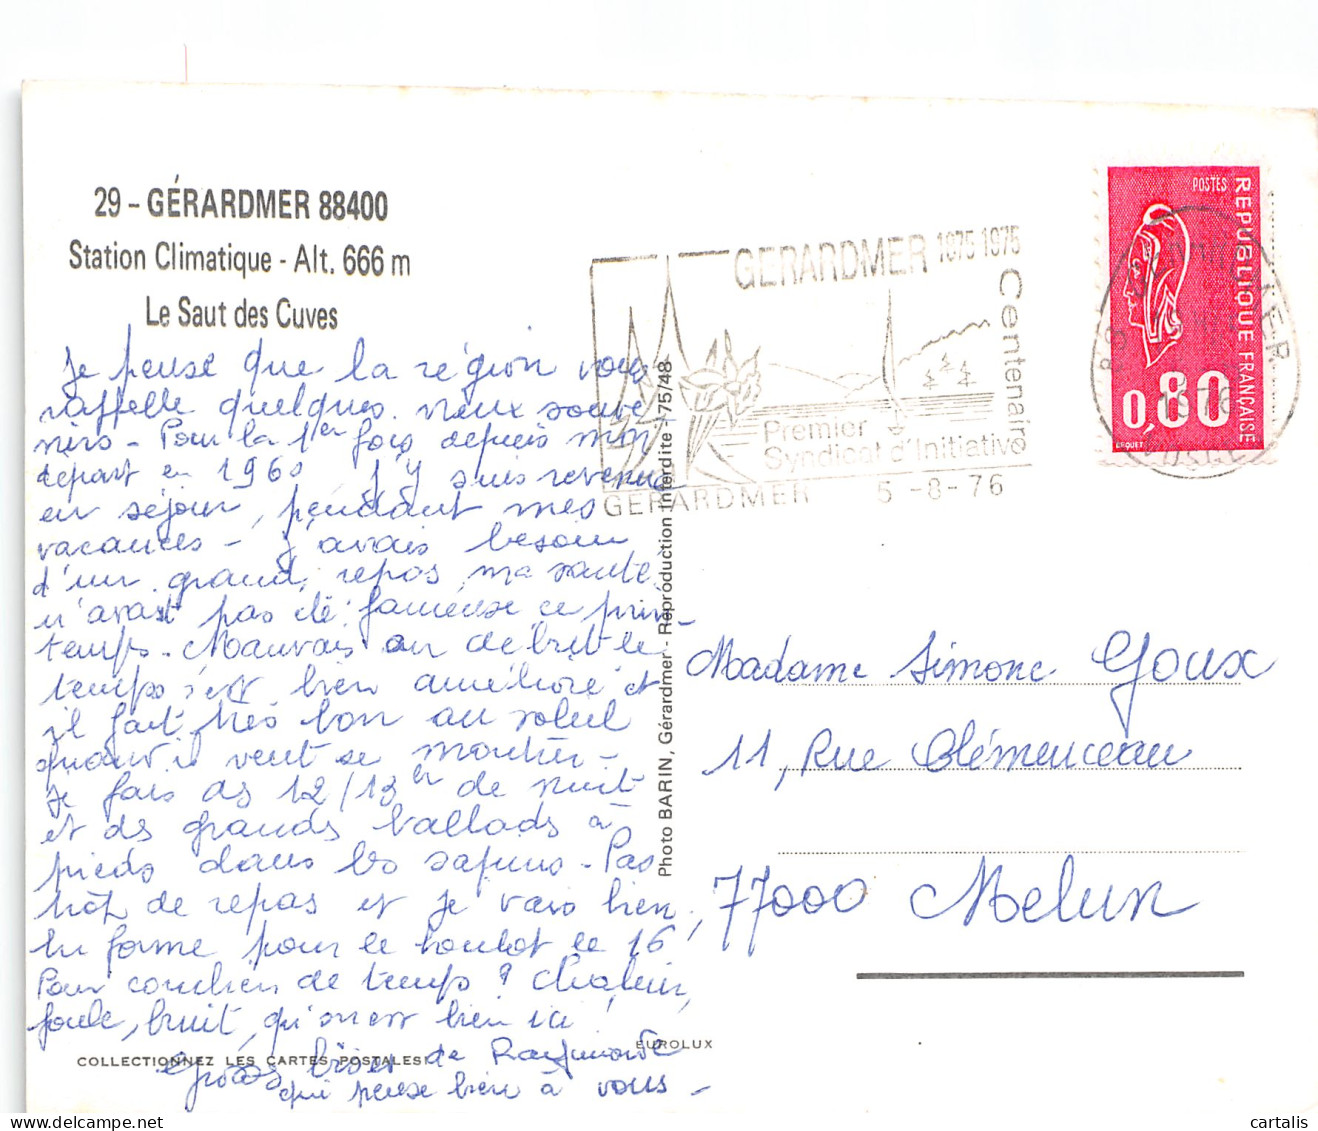 29 - GÉRARDMER 88400
Station Climatique - Alt. 666 m
Le Saut des Cuves
Je pense que la région vous
rappelle quelques vieux souve
nirs - Pour la 1er fois depuis mon
départ en 1960 j'y suis revenue
en séjour, pendant mes
vacances - j'avais besoin
d'un grand repos, ma santé
n'avait pas été fameuse ce prin-
temps. Mauvais au début le
temps s'est bien amélioré et
il fait très bon au soleil
quand il veut se montrer -
Je fais des 12/13 h de nuit
et des grandes ballads à
pieds dans les sapins - Pas
de repas et je vais bien
en forme pour le boulot le 16!
Pour combien de temps ? Chaleur,
foule, bruit, qu'on est bien ici!
Gros bises de Raymonde
qui pense bien à vous -
COLLECTIONNEZ LES CARTES POSTALES
EUROLUX
Photo BARIN, Gérardmer - Reproduction interdite - 75/48
GERARDMER 1875 1975
Centenaire
Premier
Syndicat d'Initiative
GERARDMER 5-8-76
POSTES
REPUBLIQUE FRANÇAISE
0,80
1976
VOSGES
Madame Simone Goux
11, Rue Clémenceau
77000 Melun
cartalis